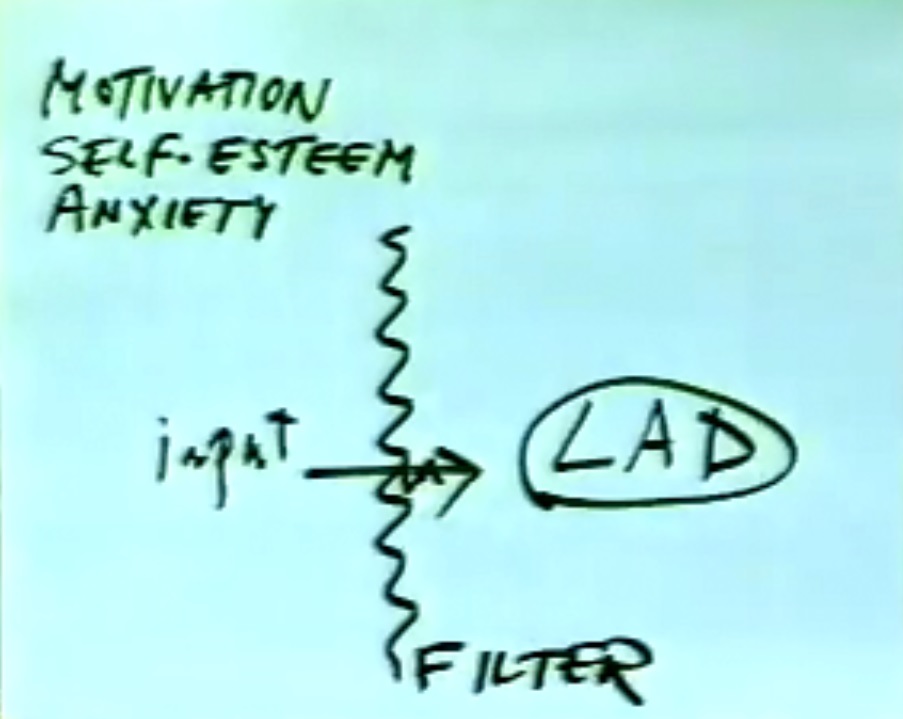 MOTIVATION
SELF-ESTEEM
ANXIETY
input
LAD
FILTER